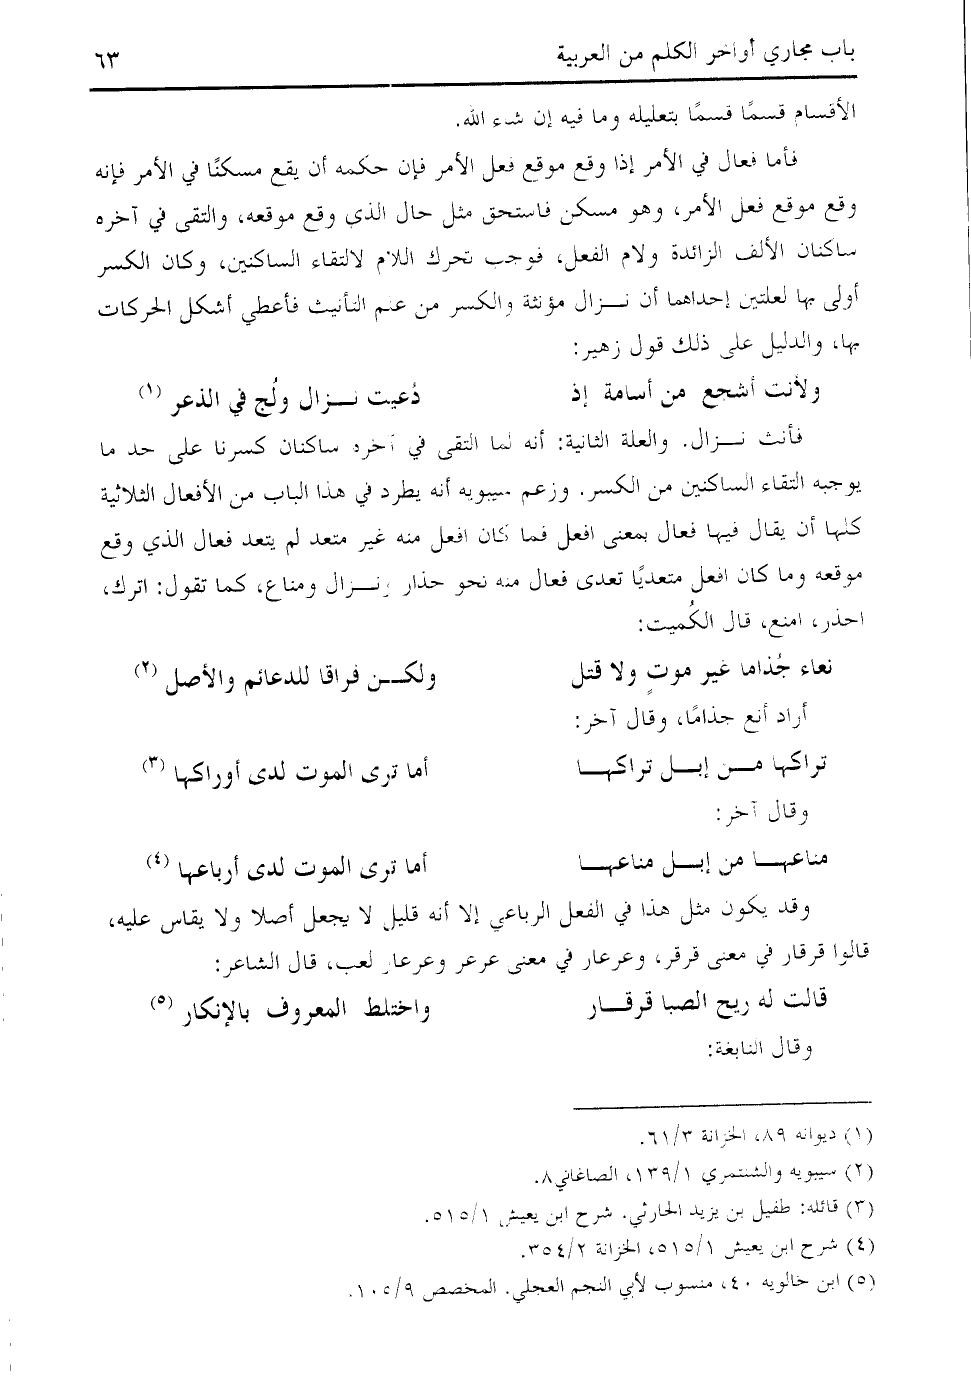 باب مجاري أواخر الكلم من العربية ٦٣
الأقسام قسمًا قسمًا بتعليله وما فيه إن شاء الله.
فأما فعال في الأمر إذا وقع موقع فعل الأمر فإن حكمه أن يقع مسكنًا في الأمر فإنه
وقع موقع فعل الأمر، وهو مسكن فاستحق مثل حال الذي وقع موقعه، والتقى في آخره
ساكنان الألف الزائدة ولام الفعل، فوجب تحرك اللام لالتقاء الساكنين، وكان الكسر
أولى بها لعلتين إحداهما أن نـزال مؤنثة والكسر من علم التأنيث فأعطي أشكل الحركات
بها، والدليل على ذلك قول زهير:
ولأنت أشجع من أسامة إذ دُعيت نـزال ولُج في الذعر (١)
فأنث نـزال. والعلة الثانية: أنه لما التقى في آخره ساكنان كسرنا على حد ما
يوجبه التقاء الساكنين من الكسر. وزعم سيبويه أنه يطرد في هذا الباب من الأفعال الثلاثية
كلها أن يقال فيها فعال بمعنى افعل فما كان افعل منه غير متعد لم يتعد فعال الذي وقع
موقعه وما كان افعل متعديًا تعدى فعال منه نحو حذار ونـزال ومناع، كما تقول: اترك،
احذر، امنع، قال الكُميت:
نعاء جُذاما غير موتٍ ولا قتل ولكـن فراقا للدعائم والأصل (٢)
أراد أنع جذامًا، وقال آخر:
تراكها مـن إبـل تراكهـا أما ترى الموت لدى أوراكها (٣)
وقال آخر:
مناعهـا من إبـل مناعهـا أما ترى الموت لدى أرباعها (٤)
وقد يكون مثل هذا في الفعل الرباعي إلا أنه قليل لا يجعل أصلا ولا يقاس عليه،
قالوا قرقار في معنى قرقر، وعرعار في معنى عرعر وعرعار لعب، قال الشاعر:
قالت له ريح الصبا قرقـار واختلط المعروف بالإنكار (٥)
وقال النابغة:
(١) ديوانه ٨٩، الخزانة ٦١/٣.
(٢) سيبويه والشنتمري ١٣٩/١، الصاغاني ٨.
(٣) قائله: طفيل بن يزيد الحارثي. شرح ابن يعيش ٥١٥/١.
(٤) شرح ابن يعيش ٥١٥/١، الخزانة ٣٥٤/٢.
(٥) ابن خالويه ٤٠، منسوب لأبي النجم العجلي. المخصص ١٠٥/٩.